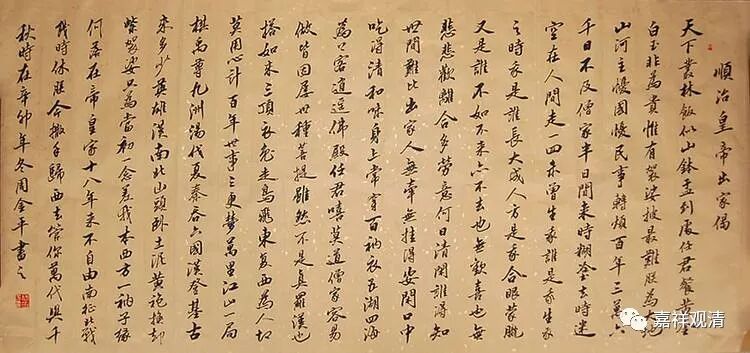 順治皇帝出家偈
天下叢林飯似山鉢盂到處任君餐黃金
白玉非為貴惟有袈裟披最難朕為大地
山河主憂國憂民事轉煩百年三萬六
千日不及僧家半日閒來時糊塗去時迷
空在人間走一回未曾生我誰是我生我
之時我是誰長大成人方是我合眼朦朧
又是誰不如不來亦不去也無歡喜也無
悲悲歡離合多勞意何日清閒誰得知
世間難比出家人無牽無掛得安閒口中
吃得清和味身上常穿百衲衣五湖四海
為上客逍遙佛殿任君嘻莫道僧家容易
做皆因屢世種菩提雖然不是真羅漢也
搭如來三頂衣兔走烏飛東復西為人切
莫用心計百年世事三更夢萬里江山一局
棋禹尊九洲湯伐夏秦吞六國漢登基古
來多少英雄漢南北山頭臥土泥黃袍換却
紫袈裟只為當初一念差我本西方一衲子緣
何落在帝皇家十八年來不自由南征北戰
幾時休朕今撒手歸西去管你萬代與千
秋時在辛卯年冬周金平書之
嘉祥观清